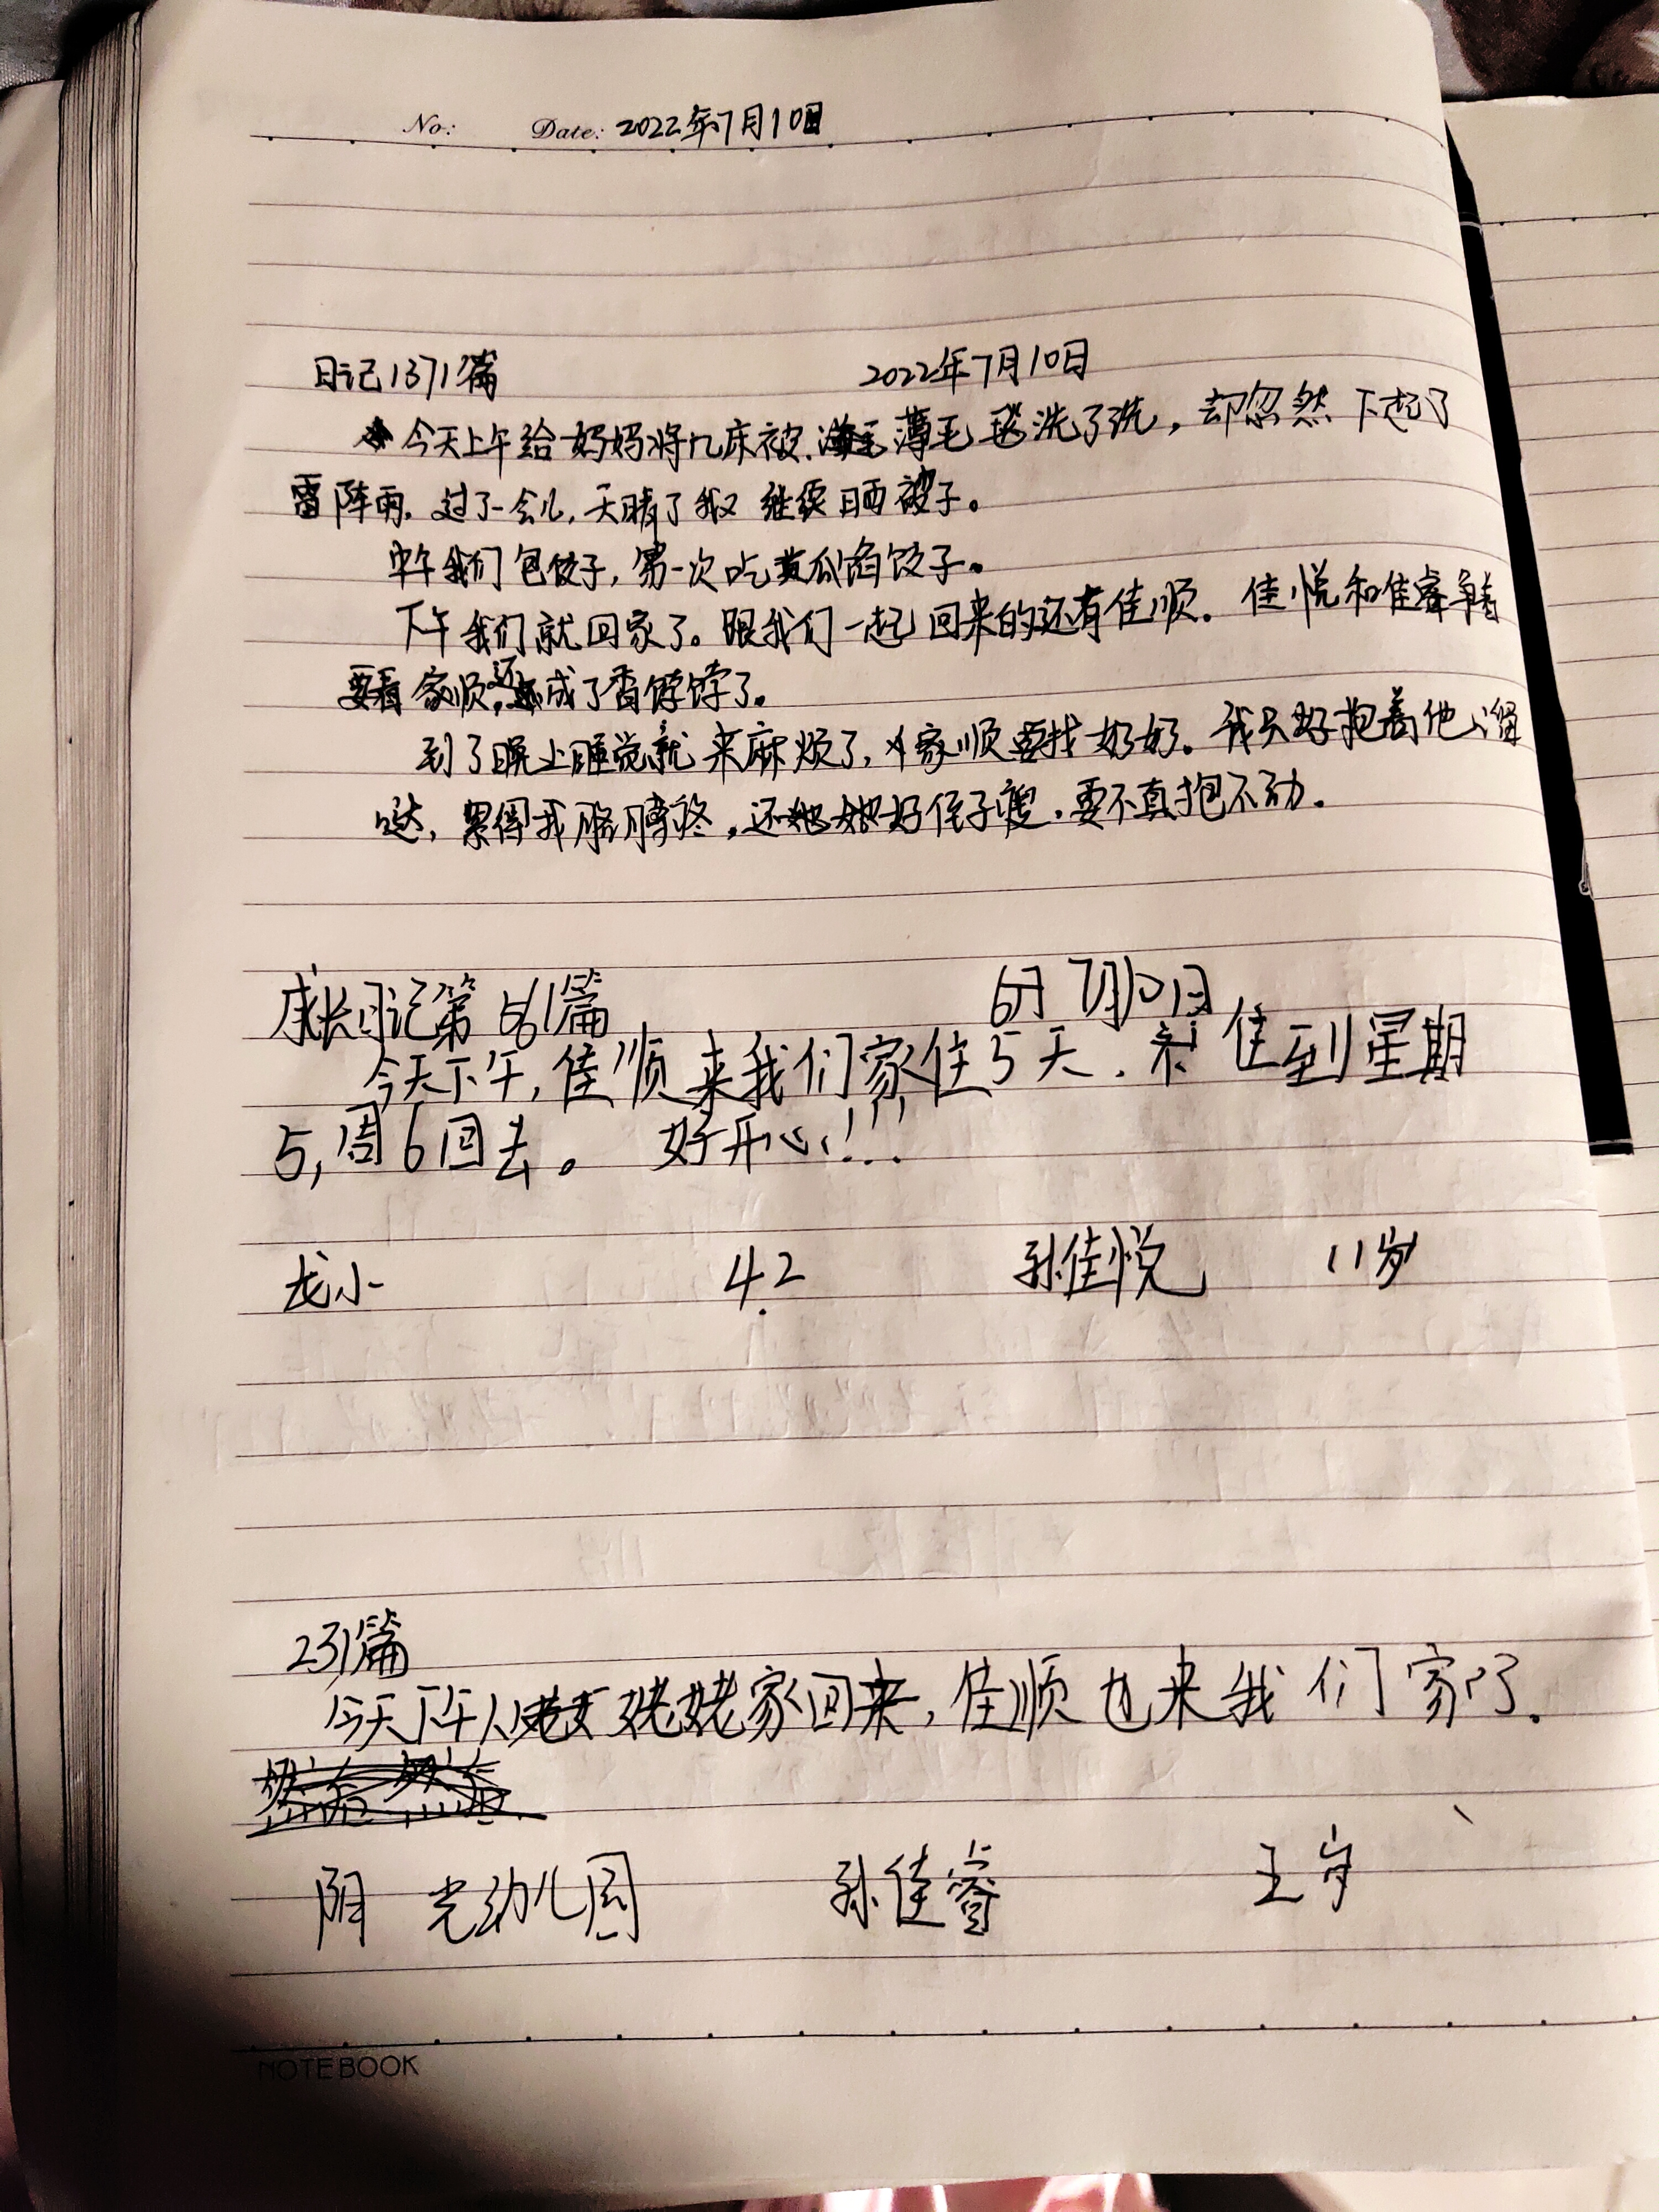 No: Date: 2022年7月10日
日记1371篇 2022年7月10日
今天上午给妈妈将几床被.薄毛毯洗了洗，却忽然下起了
雷阵雨.过了一会儿,天晴了我又继续晒被子。
中午我们包饺子,第一次吃黄瓜馅饺子。
下午我们就回家了。跟我们一起回来的还有佳顺.佳悦和佳睿争着
要看家顺,还成了香饽饽了。
到了晚上睡觉就来麻烦了,家顺要找奶奶。我只好抱着他溜
哒,累得我胳膊疼,还好侄子瘦.要不真抱不动.
成长日记第561篇 7月10日
今天下午,佳顺来我们家住5天.住到星期
5,周6回去。好开心!!!
龙小 4.2 孙佳悦 11岁
231篇
今天下午从姥姥家回来,佳顺也来我们家了.
阳光幼儿园 孙佳睿 王岁
NOTEBOOK